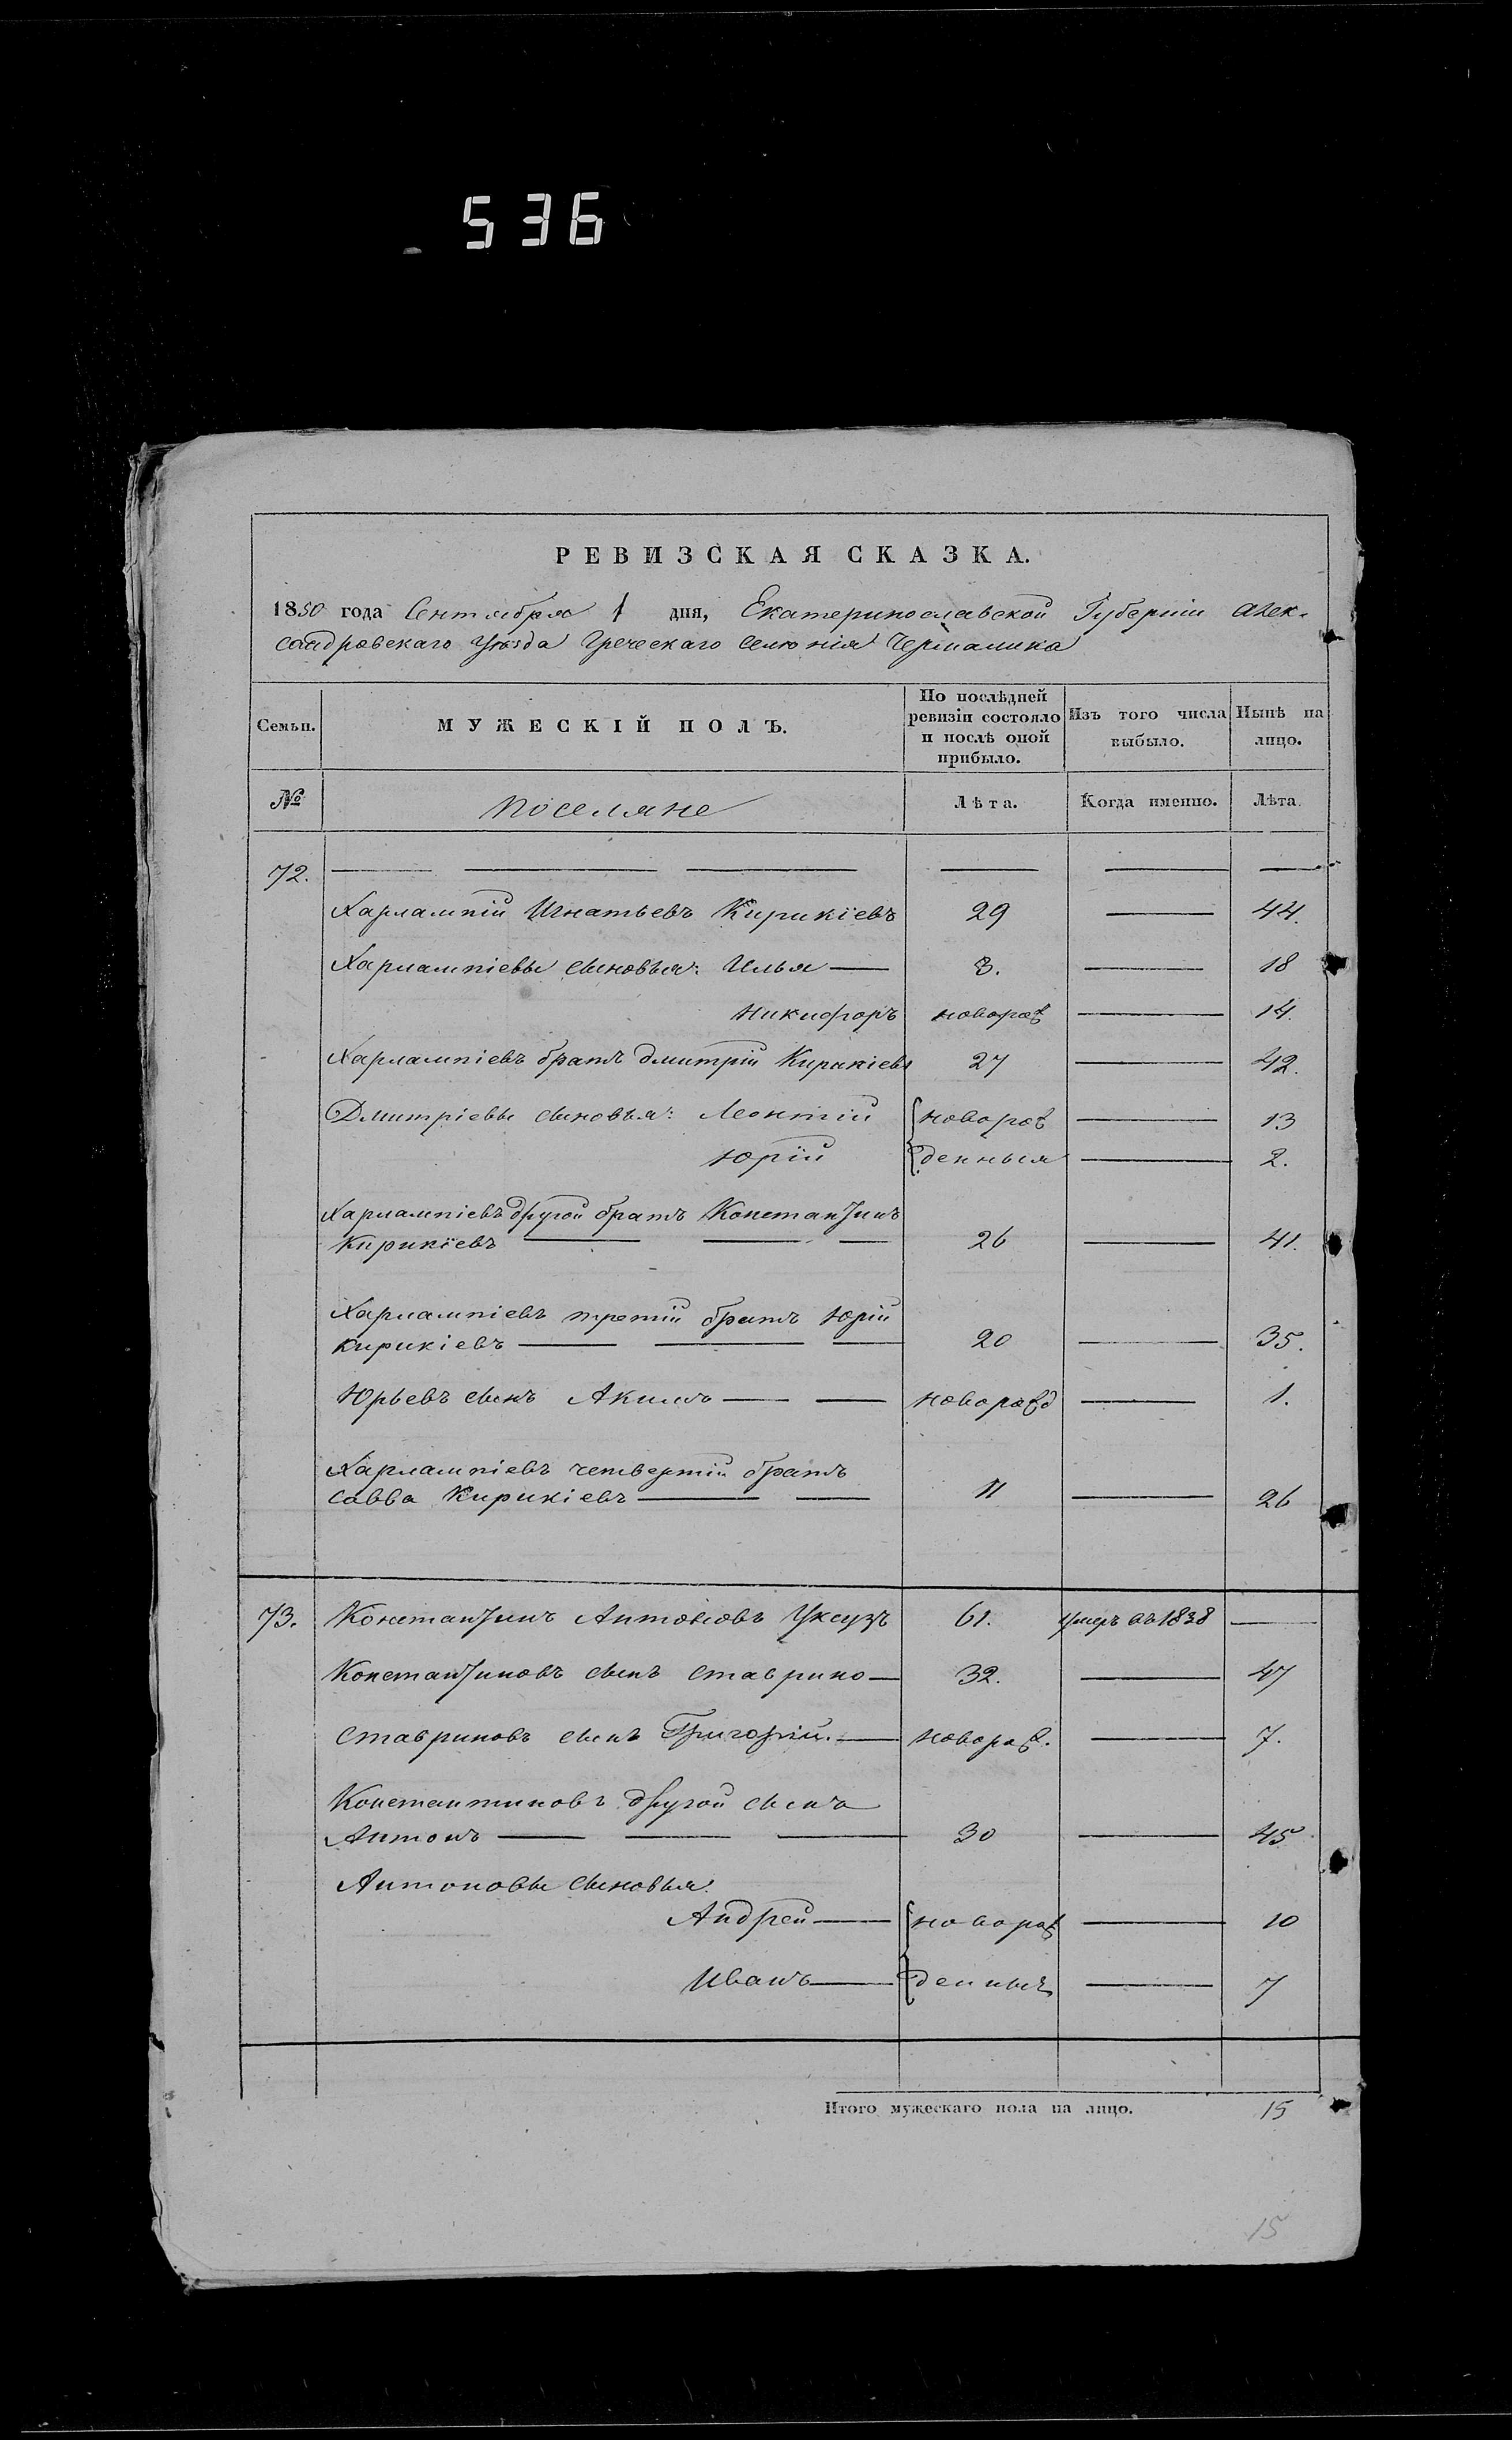 536
РЕВИЗСКАЯ СКАЗКА.
1850 года Сентября 1 дня, Екатеринославской Губерніи Алек-
сандровскаго Уѣзда Греческаго селенія Чермалика
Семьи. МУЖЕСКІЙ ПОЛЪ. По послѣдней ревизіи состояло и послѣ оной прибыло. Изъ того числа выбыло. Нынѣ на лицо.
№ Поселяне Лѣта. Когда именно. Лѣта.
72.
Харлампій Игнатьевъ Кирикіевъ 29 44.
Харлампіевы сыновья: Илья 3. 18
Никифоръ новорож 14.
Харлампіевъ братъ Дмитрій Кирикіевъ 27 42.
Дмитріевы сыновья: Леонтій новорож 13
Юрій денныя 2.
Харлампіевъ другой братъ Константинъ
Кирикіевъ 26 41.
Харлампіевъ третій братъ Юрій
Кирикіевъ 20 35.
Юрьевъ сынъ Акимъ новорожд 1.
Харлампіевъ четвертій братъ
Савва Кирикіевъ 11 26
73. Константинъ Антоновъ Уксузъ 61. умеръ въ 1838
Константиновъ сынъ Ставрино 32. 47
Ставриновъ сынъ Григорій. новорож. 7.
Константиновъ другой сынъ
Антонъ 30 45
Антоновы сыновья:
Андрей новорож 10
Иванъ денныя 7
Итого мужескаго пола на лицо. 15
15